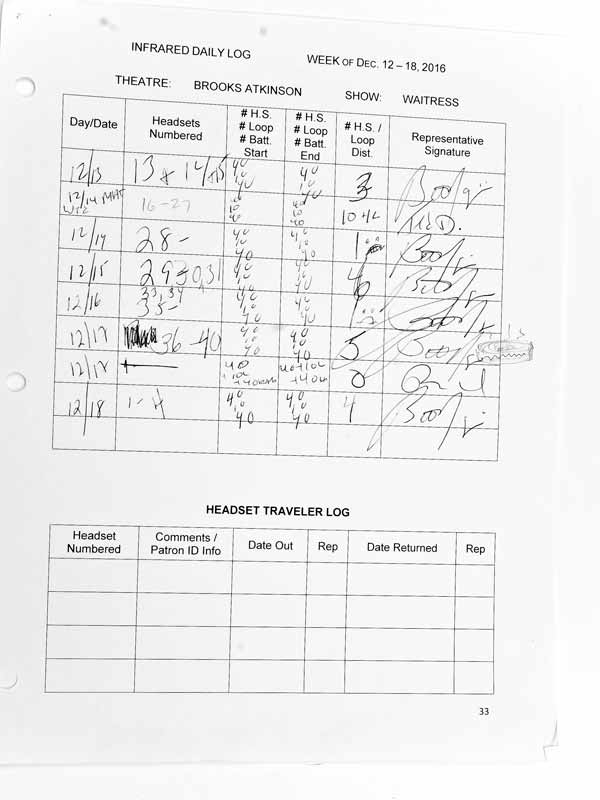 INFRARED DAILY LOG
WEEK OF DEC. 12 – 18, 2016
THEATRE: BROOKS ATKINSON
SHOW: WAITRESS
Day/Date
Headsets
Numbered
# H.S.
# Loop
# Batt.
Start
# H.S.
# Loop
# Batt.
End
# H.S. /
Loop
Dist.
Representative
Signature
12/13
13 + 14/+15
40
40
40
40
3
12/14 MAT
16-27
40
10
40
40
10
40
10+2
12/14
28-
40
10
40
40
10
40
1
12/15
29 30,31
40
10
40
40
10
40
12/16
33,34
35-
40
10
40
40
10
40
12/17
36-40
40
10
40
40
10
40
5
40
0
12/18
1-4
40
10
40
40
10
40
4
HEADSET TRAVELER LOG
Headset
Numbered
Comments /
Patron ID Info
Date Out
Rep
Date Returned
Rep
33